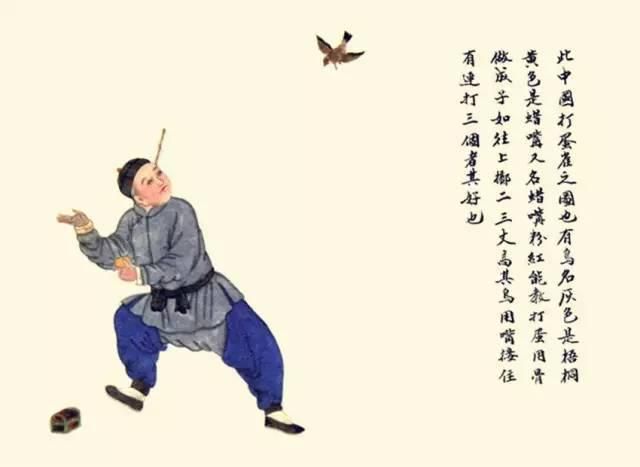 此中國打蛋雀之圖也有鳥名灰色是梧桐
黃色是蜡嘴又名蜡嘴粉紅能教打蛋用骨
做成子如往上擲二三丈高其鳥用嘴接住
有連打三個者其好也